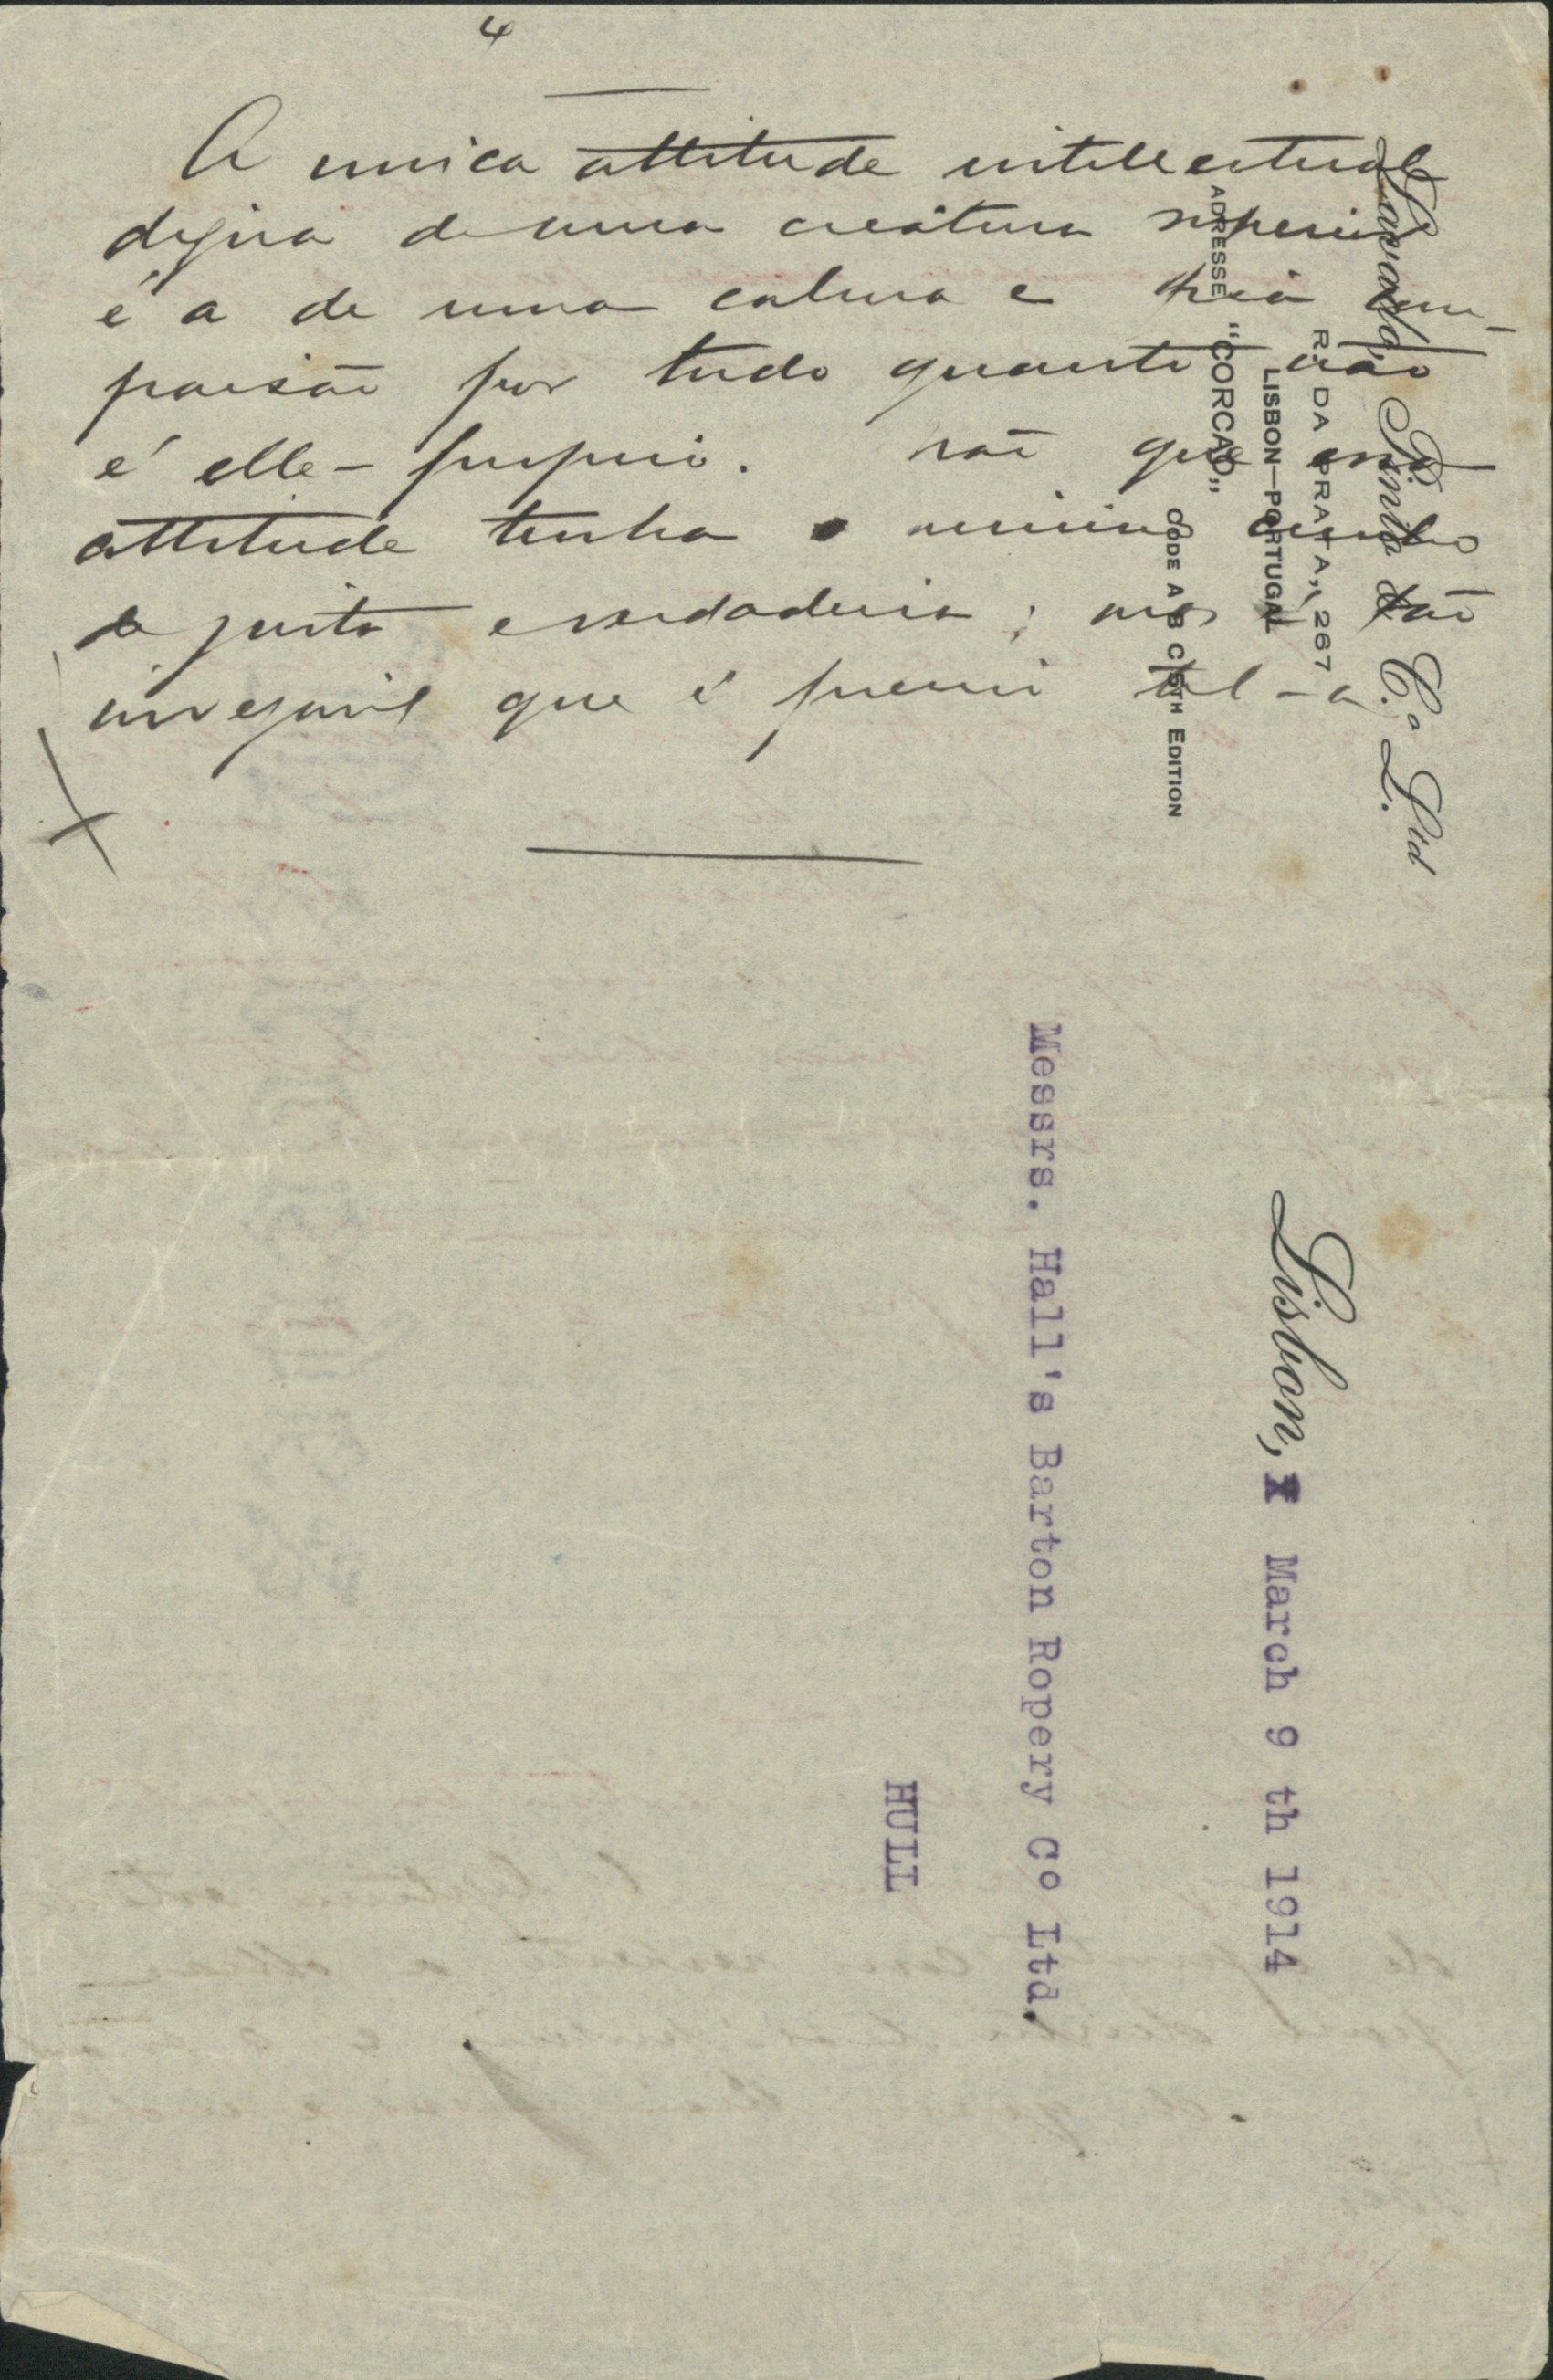 4
A unica attitude intellectual
digna de uma creatura superior
é a de uma calma e fria com-
paixão por tudo quanto não
é elle-proprio. Não que essa
attitude tenha o minimo cunho
de justa e verdadeira; mas é tão
invejavel que é preciso tel-a
Lavado, Pinto & C.ª L.ᵗᵈ
R. DA PRATA, 267
LISBON—PORTUGAL
ADRESSE "CORCADO„
CODE A B C 5TH EDITION
Lisbon, March 9 th 1914
Messrs. Hall's Barton Ropery Co Ltd.
HULL